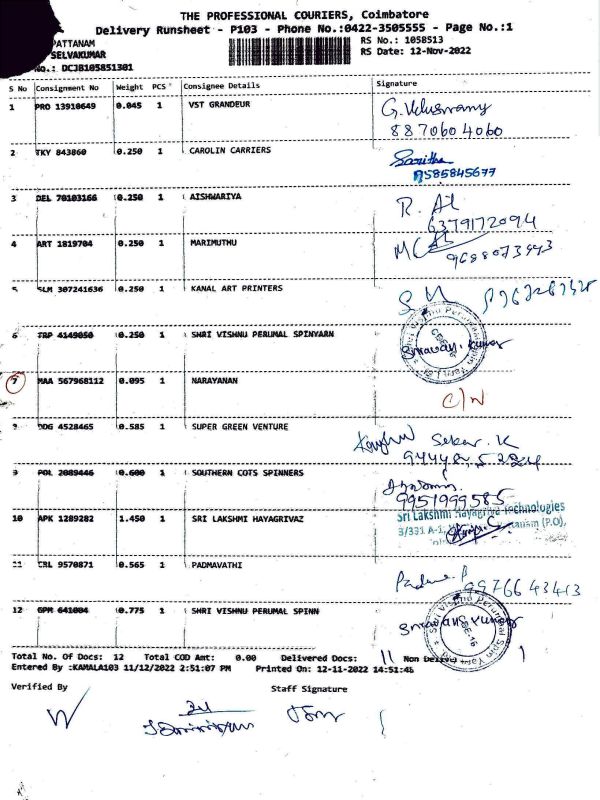 THE PROFESSIONAL COURIERS, Coimbatore
Delivery Runsheet - P103 - Phone No.:0422-3505555 - Page No.:1
PATTANAM
RS No.: 1058513
SELVAKUMAR
RS Date: 12-Nov-2022
No.: DCJB105851301
S No Consignment No Weight PCS Consignee Details Signature
1 PRO 13910649 0.045 1 VST GRANDEUR
8870604060
2 TKY 843860 0.250 1 CAROLIN CARRIERS
Saritha
9585845677
3 DEL 70103166 0.250 1 AISHWARIYA
R.
6379172094
4 ART 1819704 0.250 1 MARIMUTHU
5 SLM 307241636 0.250 1 KANAL ART PRINTERS
6 TRP 4149050 0.250 1 SHRI VISHNU PERUMAL SPINYARN
7 MAA 567968112 0.095 1 NARAYANAN
C/N
DDG 4528465 0.585 1 SUPER GREEN VENTURE
Sekar. K
9 POL 2089446 0.600 1 SOUTHERN COTS SPINNERS
9951999585
10 APK 1289282 1.450 1 SRI LAKSHMI HAYAGRIVAZ
Sri Lakshmi Hayagriva Technologies
3/331 A-1, (P.O),
11 CRL 9570871 0.565 1 PADMAVATHI
9976643413
12 GPM 641004 0.775 1 SHRI VISHNU PERUMAL SPINN
Total No. Of Docs: 12 Total COD Amt: 0.00 Delivered Docs: 11 Non Deliver 1
Entered By :KAMALA103 11/12/2022 2:51:07 PM Printed On: 12-11-2022 14:51:46
Verified By Staff Signature